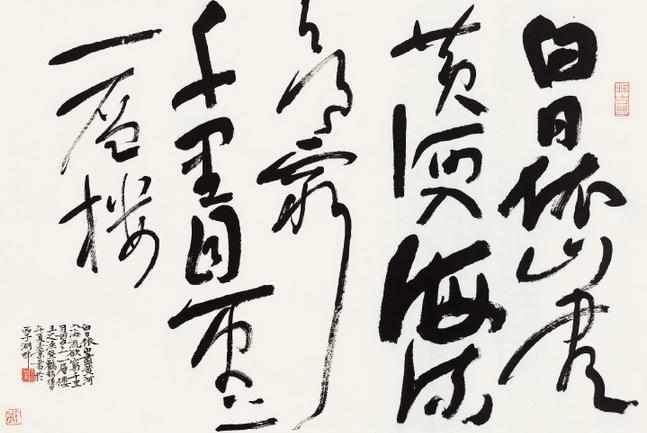 白日依山尽
黄河入海流
欲窮
千里目更上
一层楼
白日依山盡黄河
入海流欲窮千里
目更上一層楼